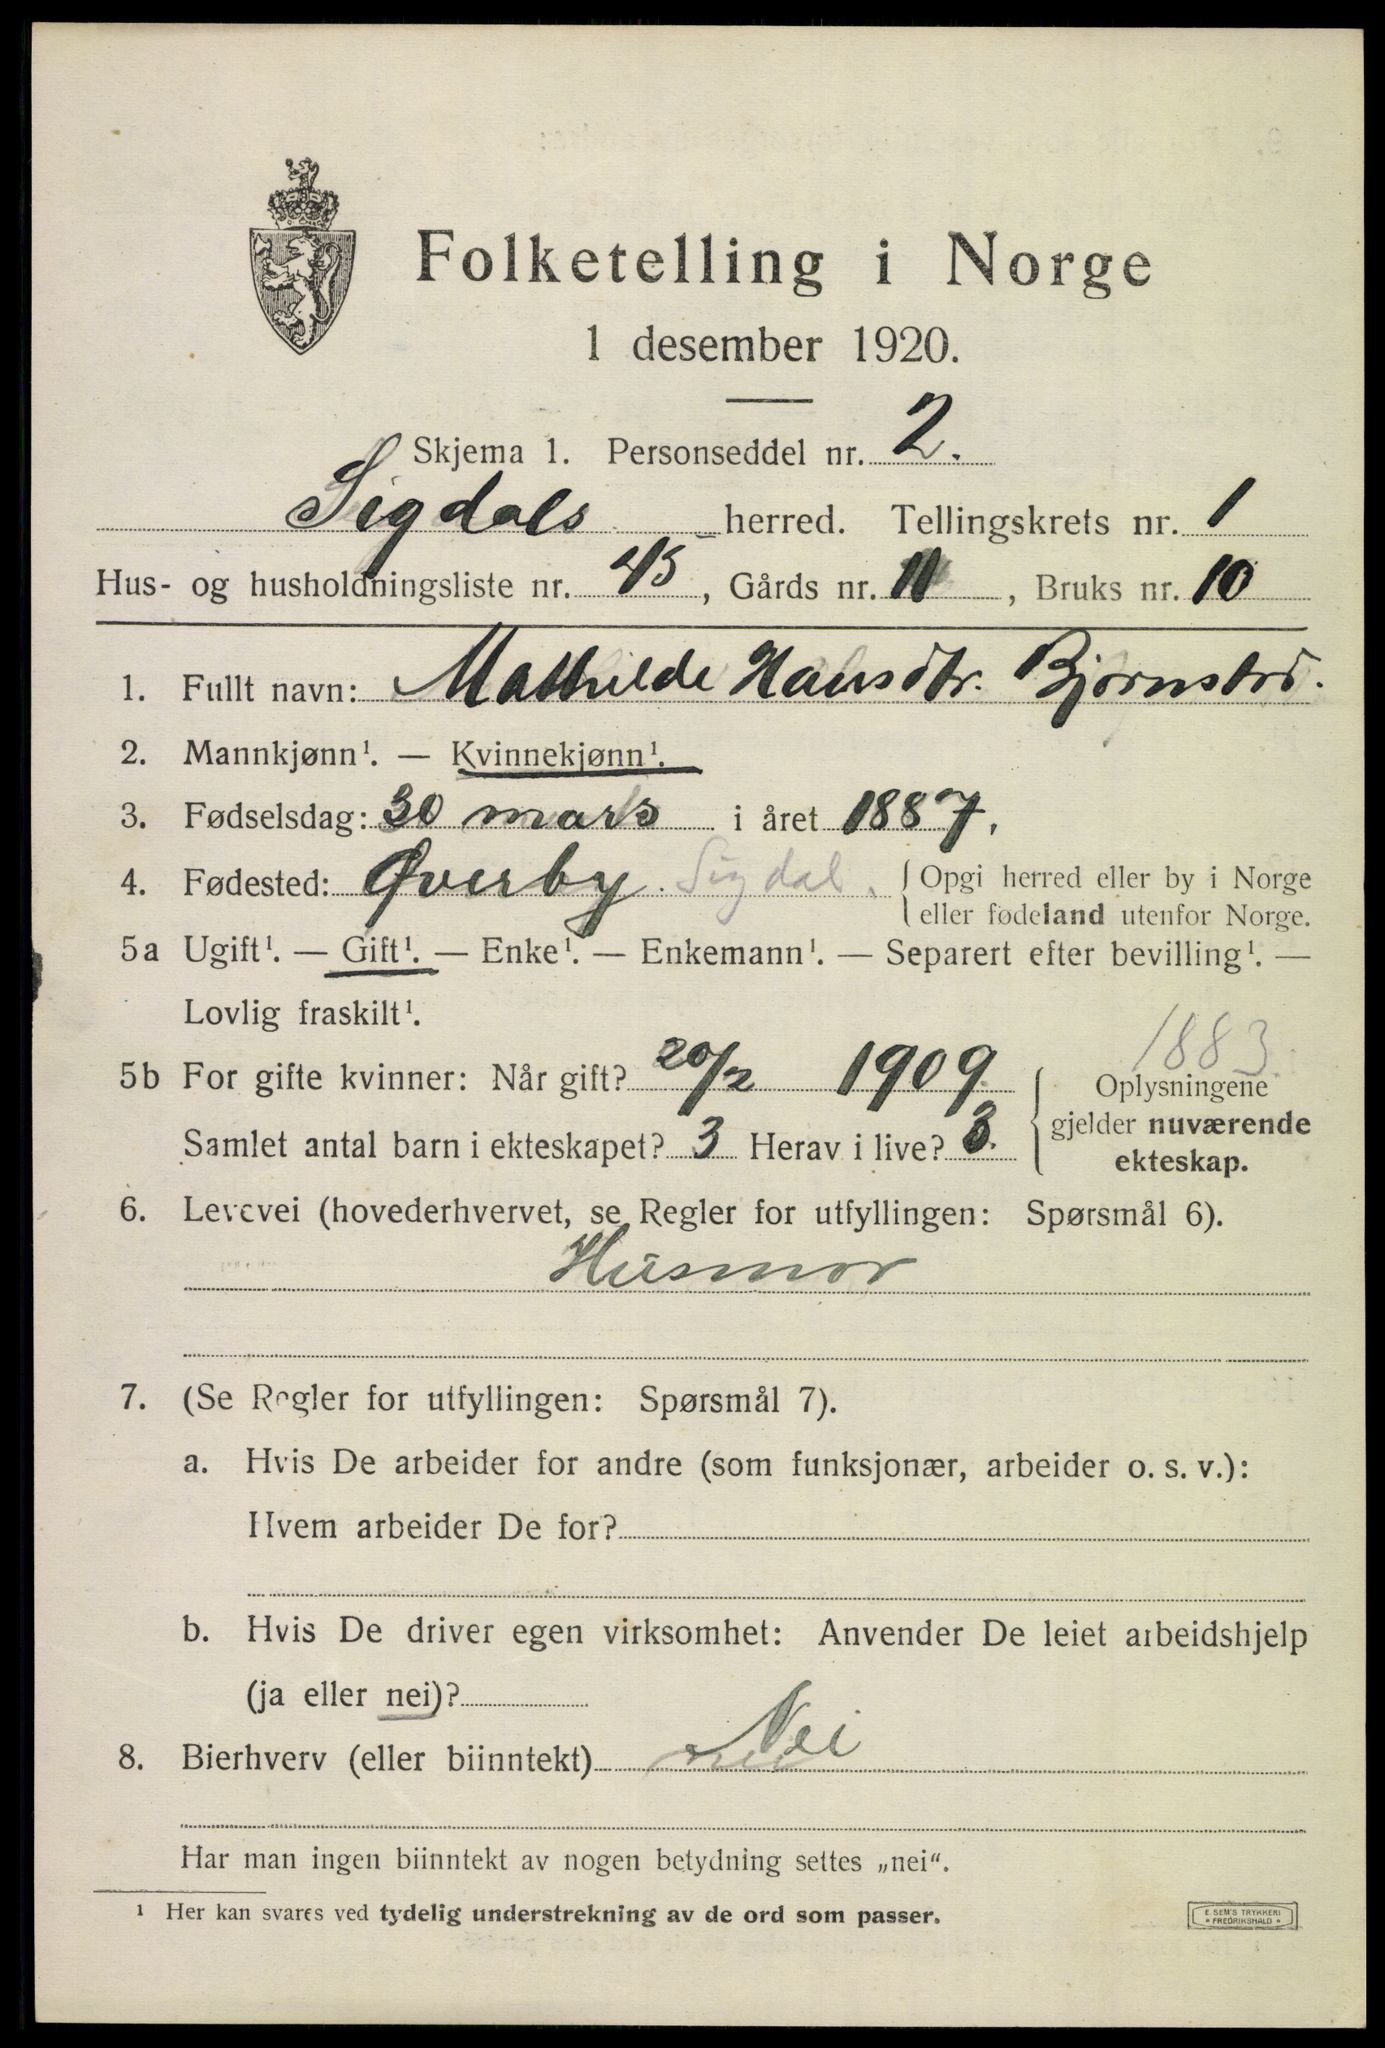 Folketelling i Norge
1 desember 1920.
Skjema 1. Personseddel nr. 2.
Sigdals herred. Tellingskrets nr. 1
Hus- og husholdningsliste nr. 45, Gårds nr. 11, Bruks nr. 10
1. Fullt navn: Mathilde Hansdtr.
2. Mannkjønn¹. — Kvinnekjønn¹.
3. Fødselsdag: 30 mars i året 1887.
4. Fødested: Øverby. Sigdal. Opgi herred eller by i Norge
eller fødeland utenfor Norge.
5a Ugift¹. — Gift¹. — Enke¹. — Enkemann¹. — Separert efter bevilling¹. —
Lovlig fraskilt¹.
1883
5b For gifte kvinner: Når gift? 20/2 1909. Oplysningene
gjelder nuværende
Samlet antal barn i ekteskapet? 3 Herav i live? 3.
ekteskap.
6. Levevei (hovederhvervet, se Regler for utfyllingen: Spørsmål 6).
Husmor
7. (Se Regler for utfyllingen: Spørsmål 7).
a. Hvis De arbeider for andre (som funksjonær, arbeider o. s. v.):
Hvem arbeider De for?
b. Hvis De driver egen virksomhet: Anvender De leiet arbeidshjelp
(ja eller nei)?
8. Bierhverv (eller biinntekt) Nei
Har man ingen biinntekt av nogen betydning settes „nei“.
¹ Her kan svares ved tydelig understrekning av de ord som passer.
E. SEM'S TRYKKERI
* FREDRIKSHALD *